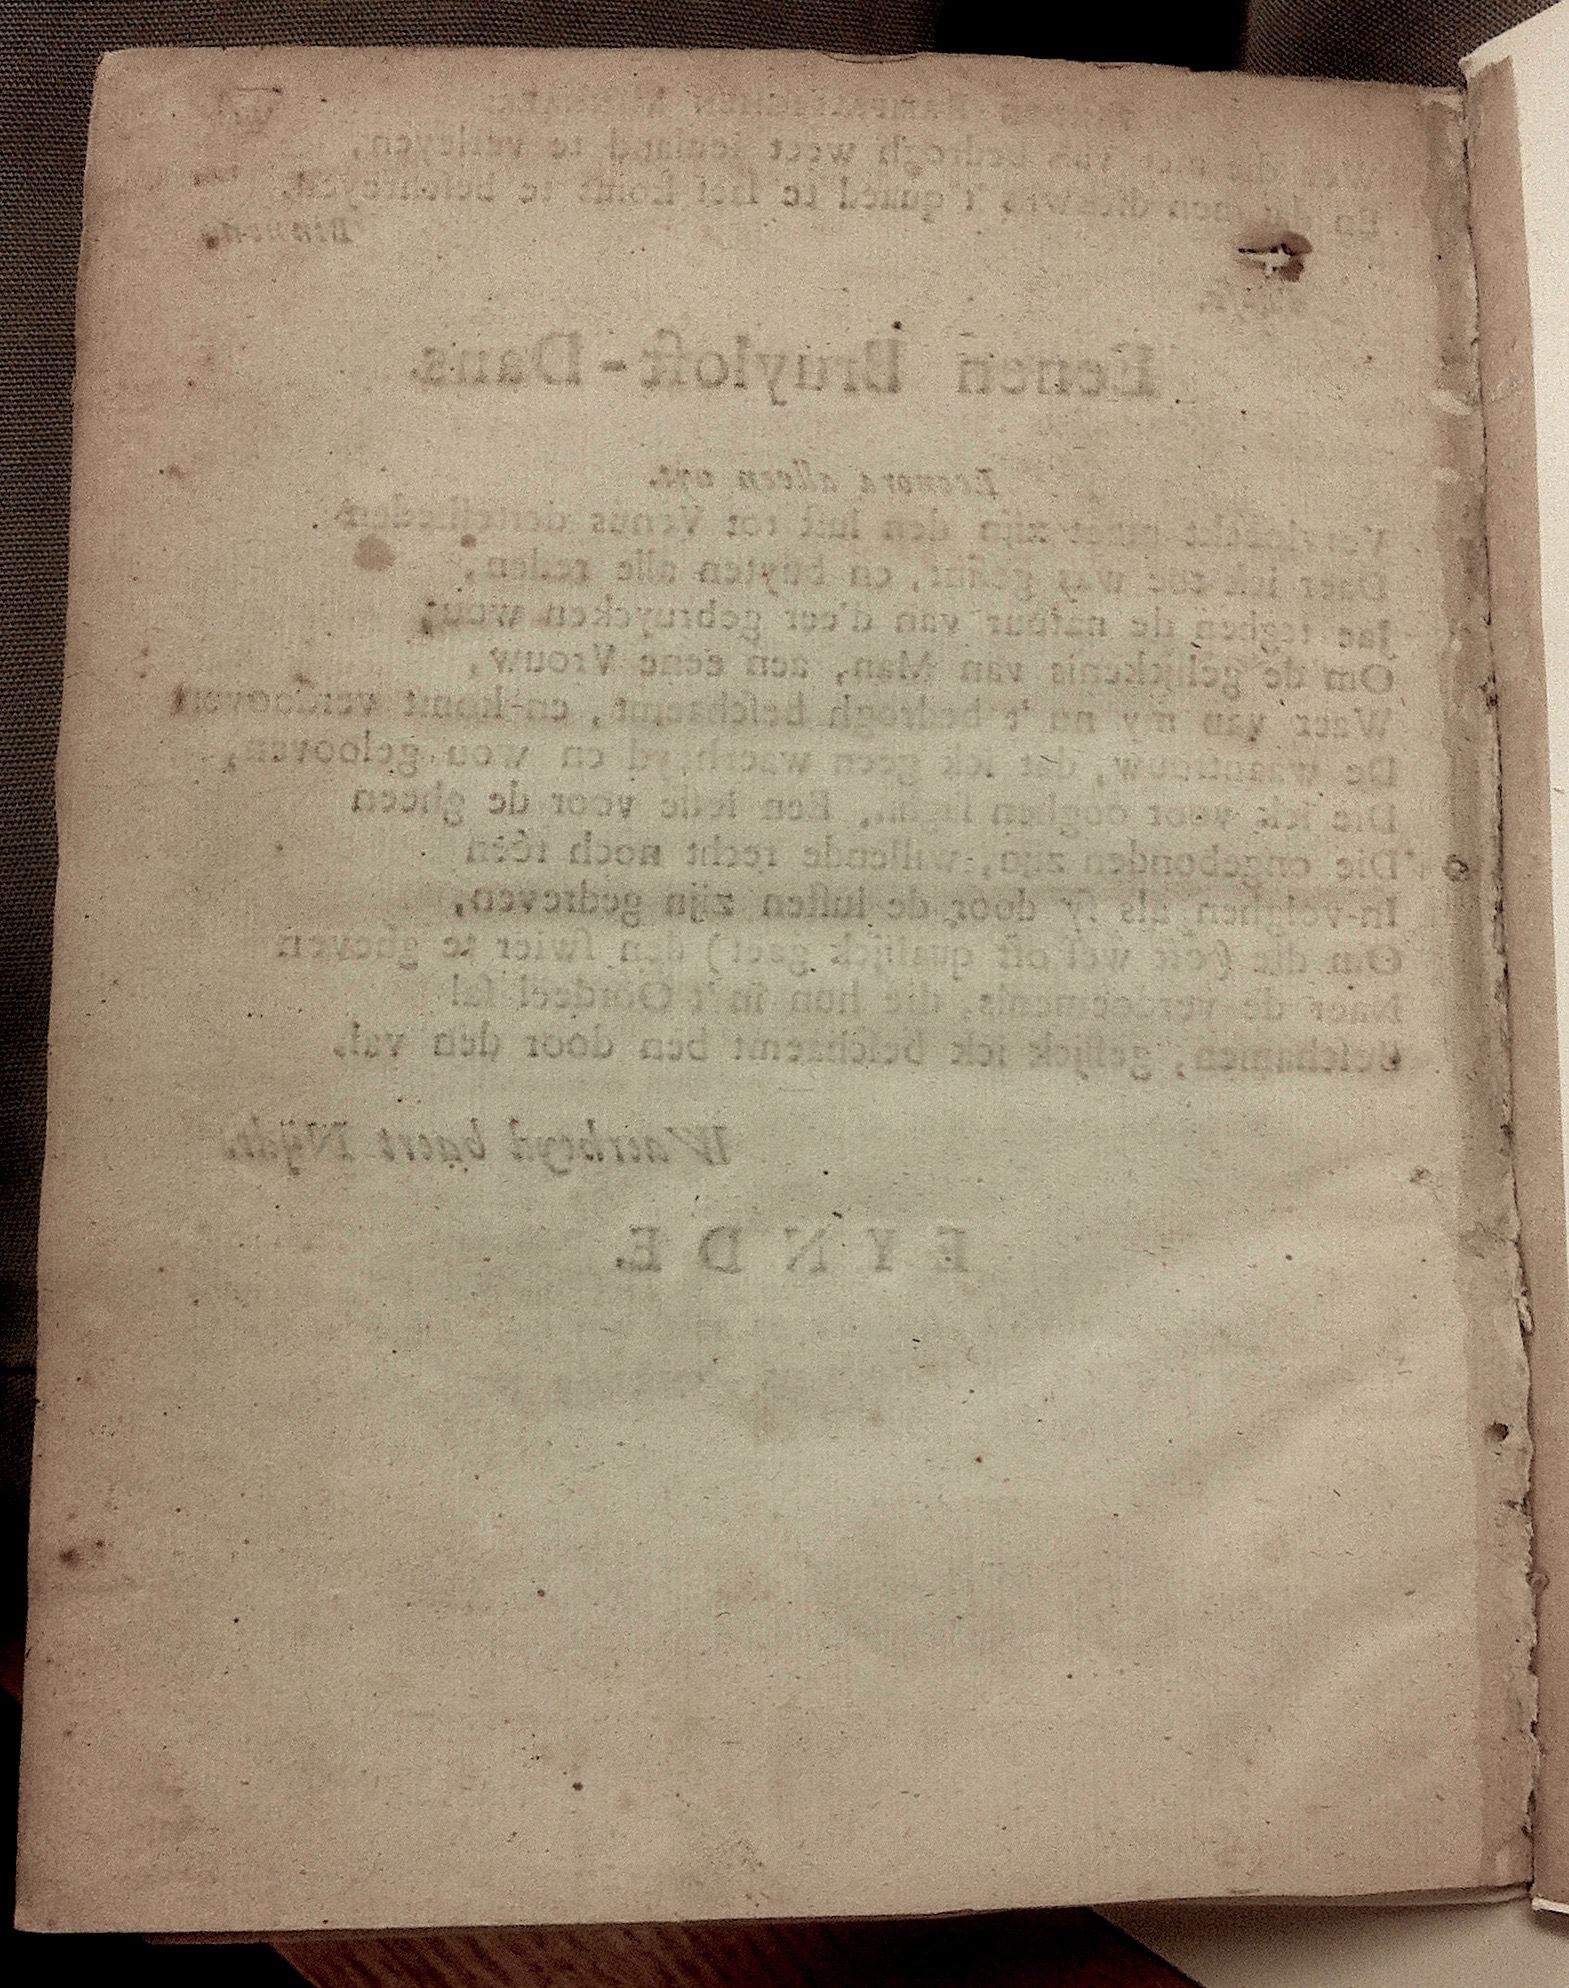 Wen die met van bedrogh weet iemand te verleyen,
En dat men dickwels 't quaed te siet komt te bescreyen,
Binnen.
Eenen Bruyloft-Dans.
Leonora alleen uyt.
Vervloeckt moet zijn den lust tot Venus dertelheden
Daer ick toe was gesint, en buyten alle reden,
Jae teghen de natuur van d'eer gebruycken wou;
Om de gelijckenis van Man, aen eene Vrouw,
Weer van my nu 't bedrogh beschaemt, en komt verdooven
De waantrouw, dat ick geen waerheyd en wou gelooven,
Die ick voor ooghen sagh. Een lesse voor de gheen
Die ongebonden zijn, willende recht noch réên
In-volghen als sy door de lusten zijn gedreven,
Om die (oft wel oft qualijck gaet) den swier te gheven
Naer de verdoemenis, die hun in 't Oordeel sal
Beschamen, gelijck ick beschaemt ben door den val.
Waerheyd baert Nijdt.
EYNDE.